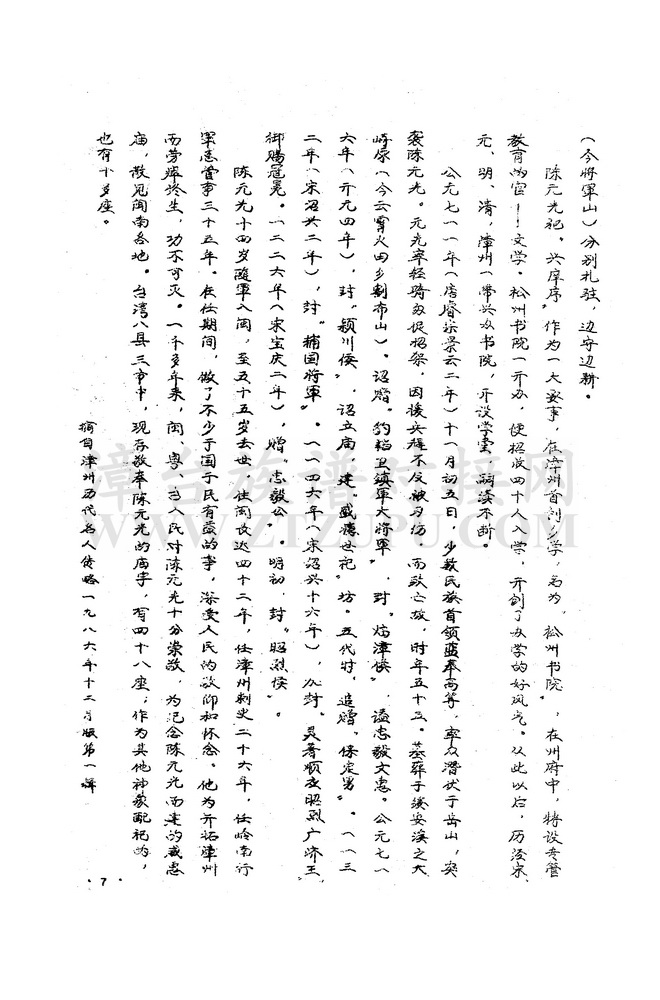 (今将军山)分别扎驻，边守边耕。
陈元光把“兴庠序”作为一大要事，在漳州首创乡学，名为“松州书院”，在州府中，特设专管
教育的官——文学。松州书院一开办，便招收四十人入学，开创了办学的好风气。从此以后，历经宋、
元、明、清，漳州一带兴办书院，开设学堂，绵续不断。
公元七一一年(唐睿宗景云二年)十一月初五日，少数民族首领蓝奉高等，率众潜伏于岳山，突
袭陈元光。元光率轻骑仓促招架，因援兵程不及被刀伤，而致亡故，时年五十五。墓葬于绥安溪之大
峙原(今云霄火田乡割布山)。诏赠“豹韬卫镇军大将军”，封“临漳侯”，谥忠毅文惠。公元七一
六年(开元四年)，封“颍川侯”，诏立庙，建“盛德世祀”坊。五代时，追赠“保定男”。一一三
二年(宋绍兴二年)，封“辅国将军”。一一四六年(宋绍兴十六年)，加封“灵著顺应昭烈广济王”
御赐冠冕。一二二六年(宋宝庆二年)，赠“忠毅公”。明初，封“昭烈侯”。
陈元光十四岁随军入闽，至五十五岁去世，住闽长达四十二年，任漳州刺史二十六年，任岭南行
军总管事三十五年。在任期间，做了不少于国于民有益的事，深受人民的敬仰和怀念。他为开拓漳州
而劳瘁终生，功不可灭。一千多年来，闽、粤、台人民对陈元光十分崇敬，为纪念陈元光而建的威惠
庙，散见闽南各地。台湾八县三市中，现存敬奉陈元光的庙宇，有四十八座；作为其他神象配祀的，
也有十多座。
摘自漳州历代名人传略一九八六年十二月版第一辑
·7·
章台族谱对接网
WWW.ZTZUPU.COM